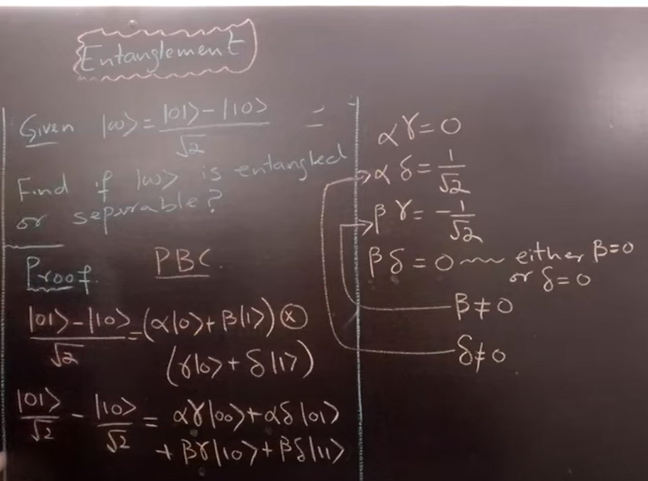 Entanglement
Given |ω> = |01> - |10> / √2 =
Find if |ω> is entangled
or separable?
Proof. PBC.
|01> - |10> / √2 = (α|0> + β|1>) ⊗
(γ|0> + δ|1>)
|01>/√2 - |10>/√2 = αγ|00> + αδ|01>
+ βγ|10> + βδ|11>
αγ = 0
αδ = 1/√2
βγ = -1/√2
βδ = 0 ~~ either β=0
or δ=0
β≠0
δ≠0